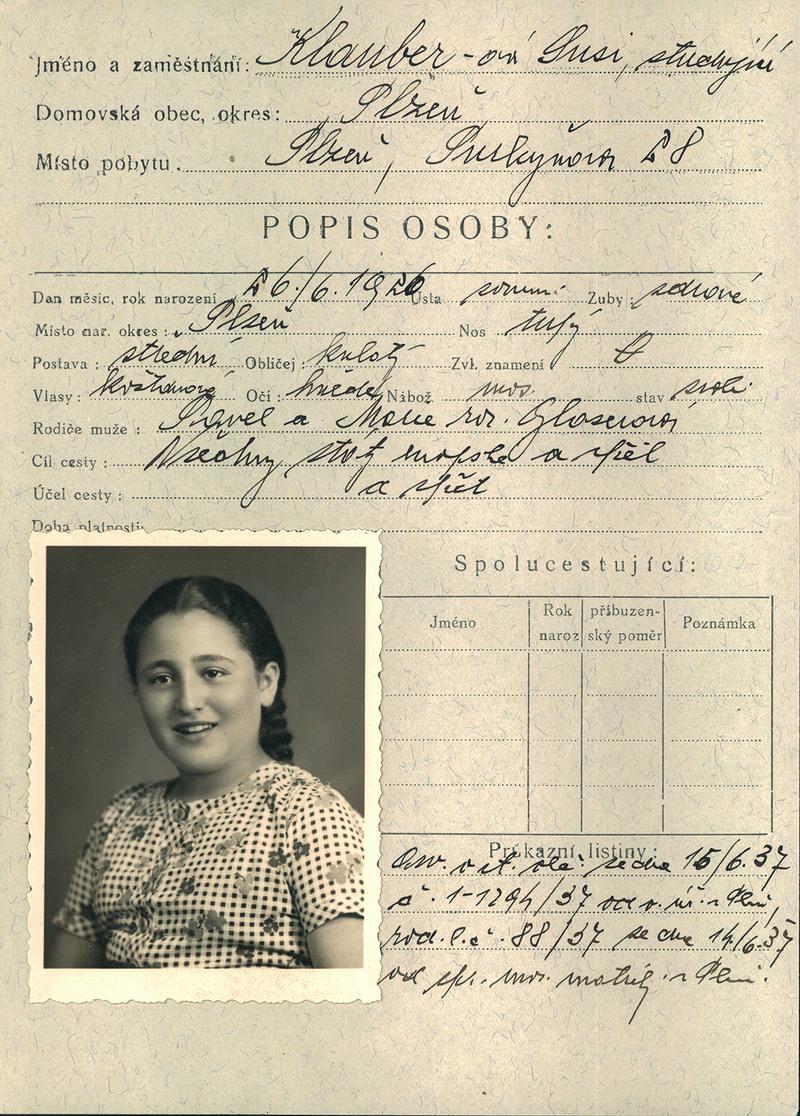 Jméno a zaměstnání: Klauber-ová Susi, studující
Domovská obec, okres: Plzeň
Místo pobytu. Plzeň, Purkyňova 28
POPIS OSOBY:
Dan měsíc, rok narození 26./6. 1926 Ústa souměr. Zuby: zdravé
Místo nar. okres: Plzeň Nos tupý
Postava: střední Obličej: kulatý Zvl. znamení 0
Vlasy: kaštanové Oči: hnědé Nábož. mos. stav svob.
Rodiče muže: Pavel a Marie roz. Glaserová
Cíl cesty: Všechny státy evropské a zpět
Účel cesty: a zpět
Doba platnosti:
Spolucestující:
Jméno Rok naroz příbuzen-ský poměr Poznámka
Průkazní listiny:
Osv. o st. obč. ze dne 15/6.37
č. 1-1294/37 od o. úř. v Plzni,
rod. l. č. 88/37 ze dne 14/6.37
od spr. mos. matriky v Plzni.